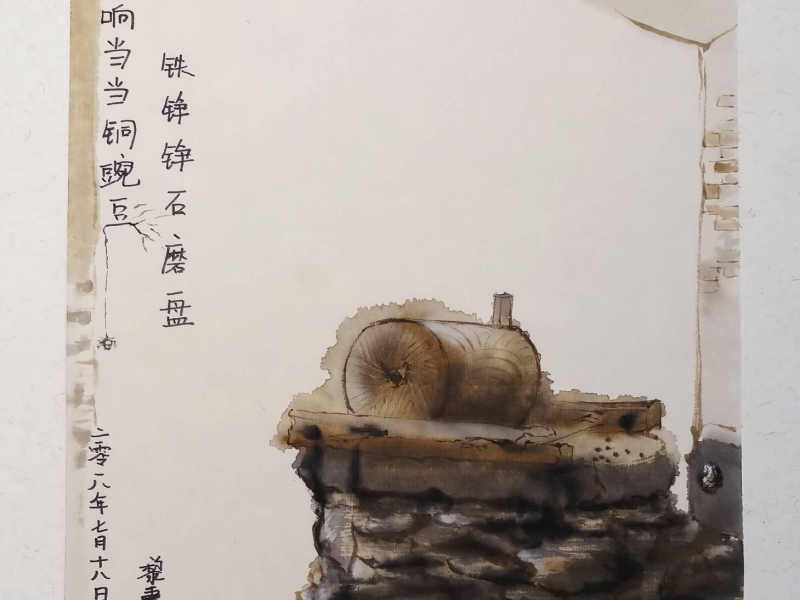 铁铮铮石磨盘
响当当铜豌豆
二零一八年七月十八日
黎